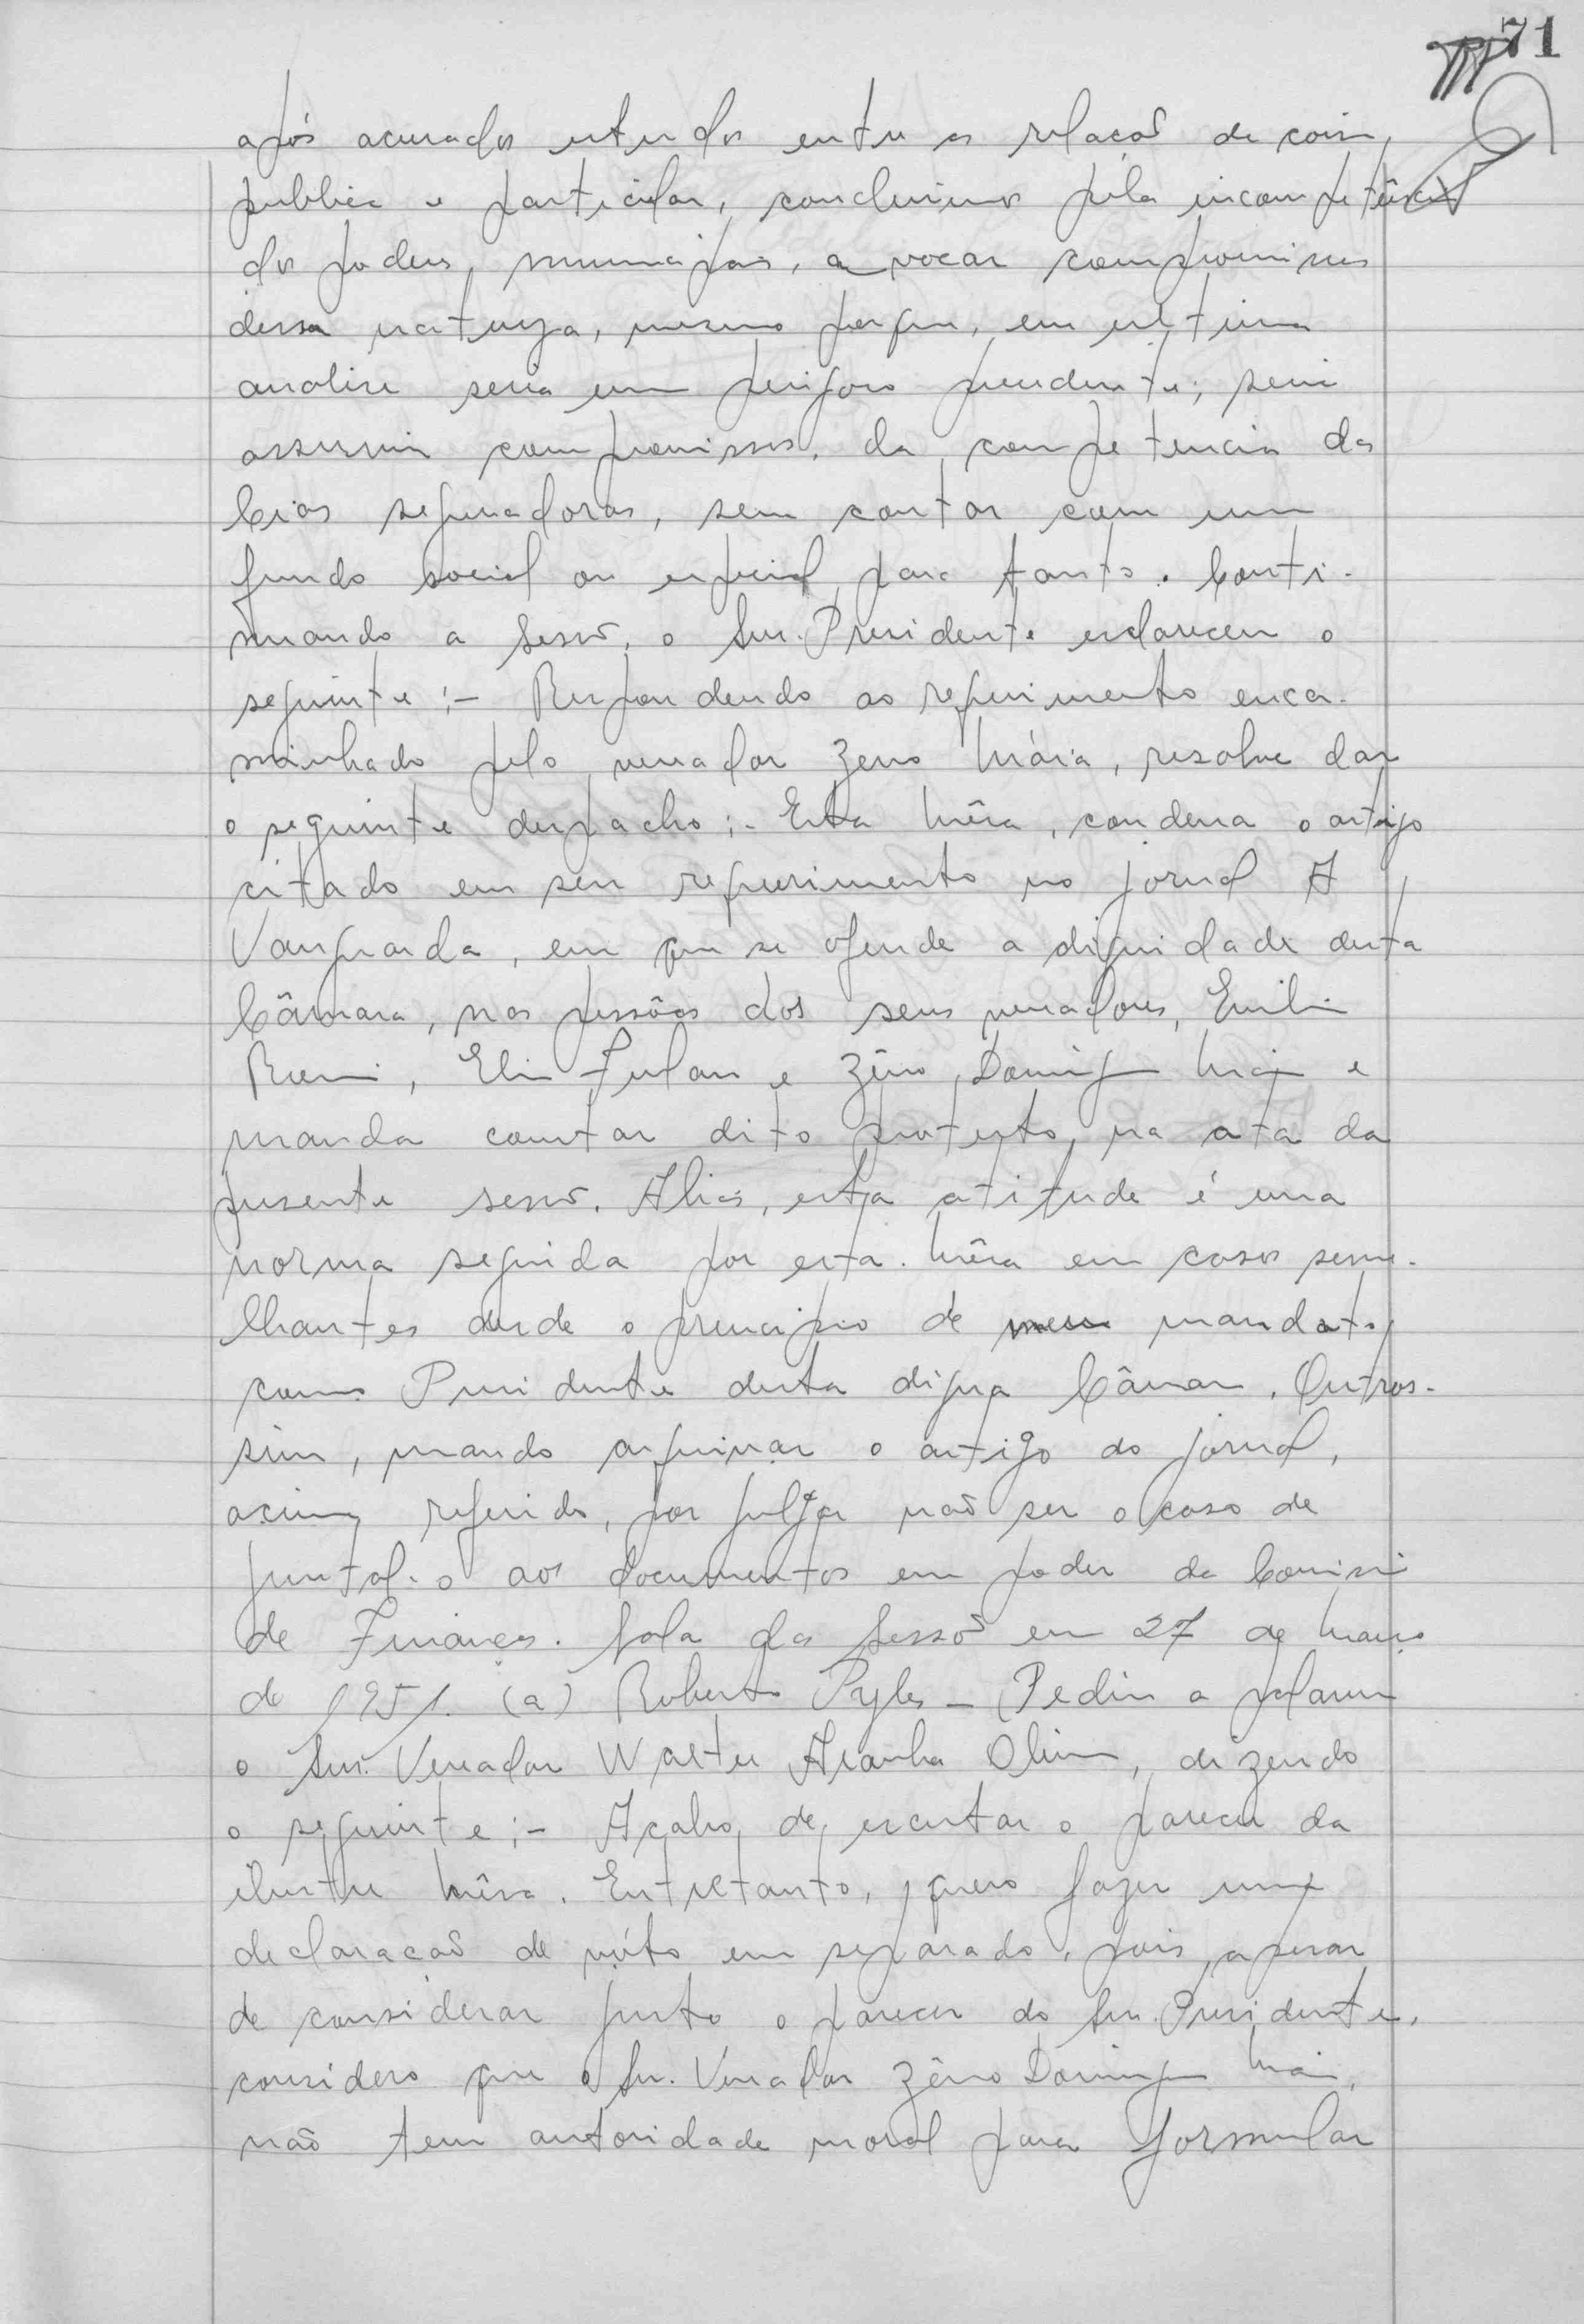 71
após acurados estudos entre as relacoẽs de coisa
publica e particular, concluimos péla incompetência
dos poderes, municipais, a vocar compromissos
dessa natureza, mesmo porque, em ultima
analise seria um perigoso precedente; seria
assumir compromissos, da competencia das
Cias seguradoras, sem contar com um
fundo social ou especial, para tanto. Conti-
nuando a Sessõ, o Snr. Presidente esclareceu o
seguinte :- Respondendo ao requerimento enca-
minhado pelo vereador Zeno Máia, resolve dar
o seguinte despacho :- Esta Mêsa, condena o artigo
citado em seu requerimento no jornal A
Vanguarda, em que se ofende a dignidade desta
Câmara, nas pessôas dos seus vereadores, Emilio
Elio Fulan e Zêno Domingues Maia e
manda constar dito protesto, na ata da
presente sessõ. Aliás, esta atitude é uma
norma seguida por esta Mêsa em casos seme-
lhantes desde o principio de meu mandato,
como Presidente desta digna Câmara. Outros-
sim, mando arquivar o artigo do jornal,
acima referido, por julgar naõ ser o caso de
juntal-o aos documentos em poder da Comissã
de Finanças. Sala das Sessõ em 27 de Março
de 1951. (a) Roberto Pyles - Pediu a palavra
o Snr. Vereador Walter Aranha Olivei, dizendo
o seguinte :- Acabo de escutar o parecer da
ilustre Mêsa. Entretanto, quero fazer uma
declaracaõ de vóto em separado, pois, apesar
de considerar justo o parecer do Snr. Presidente,
considero que o Snr. Vereador Zêno Domingues Maia,
naõ tem autoridade moral para formular